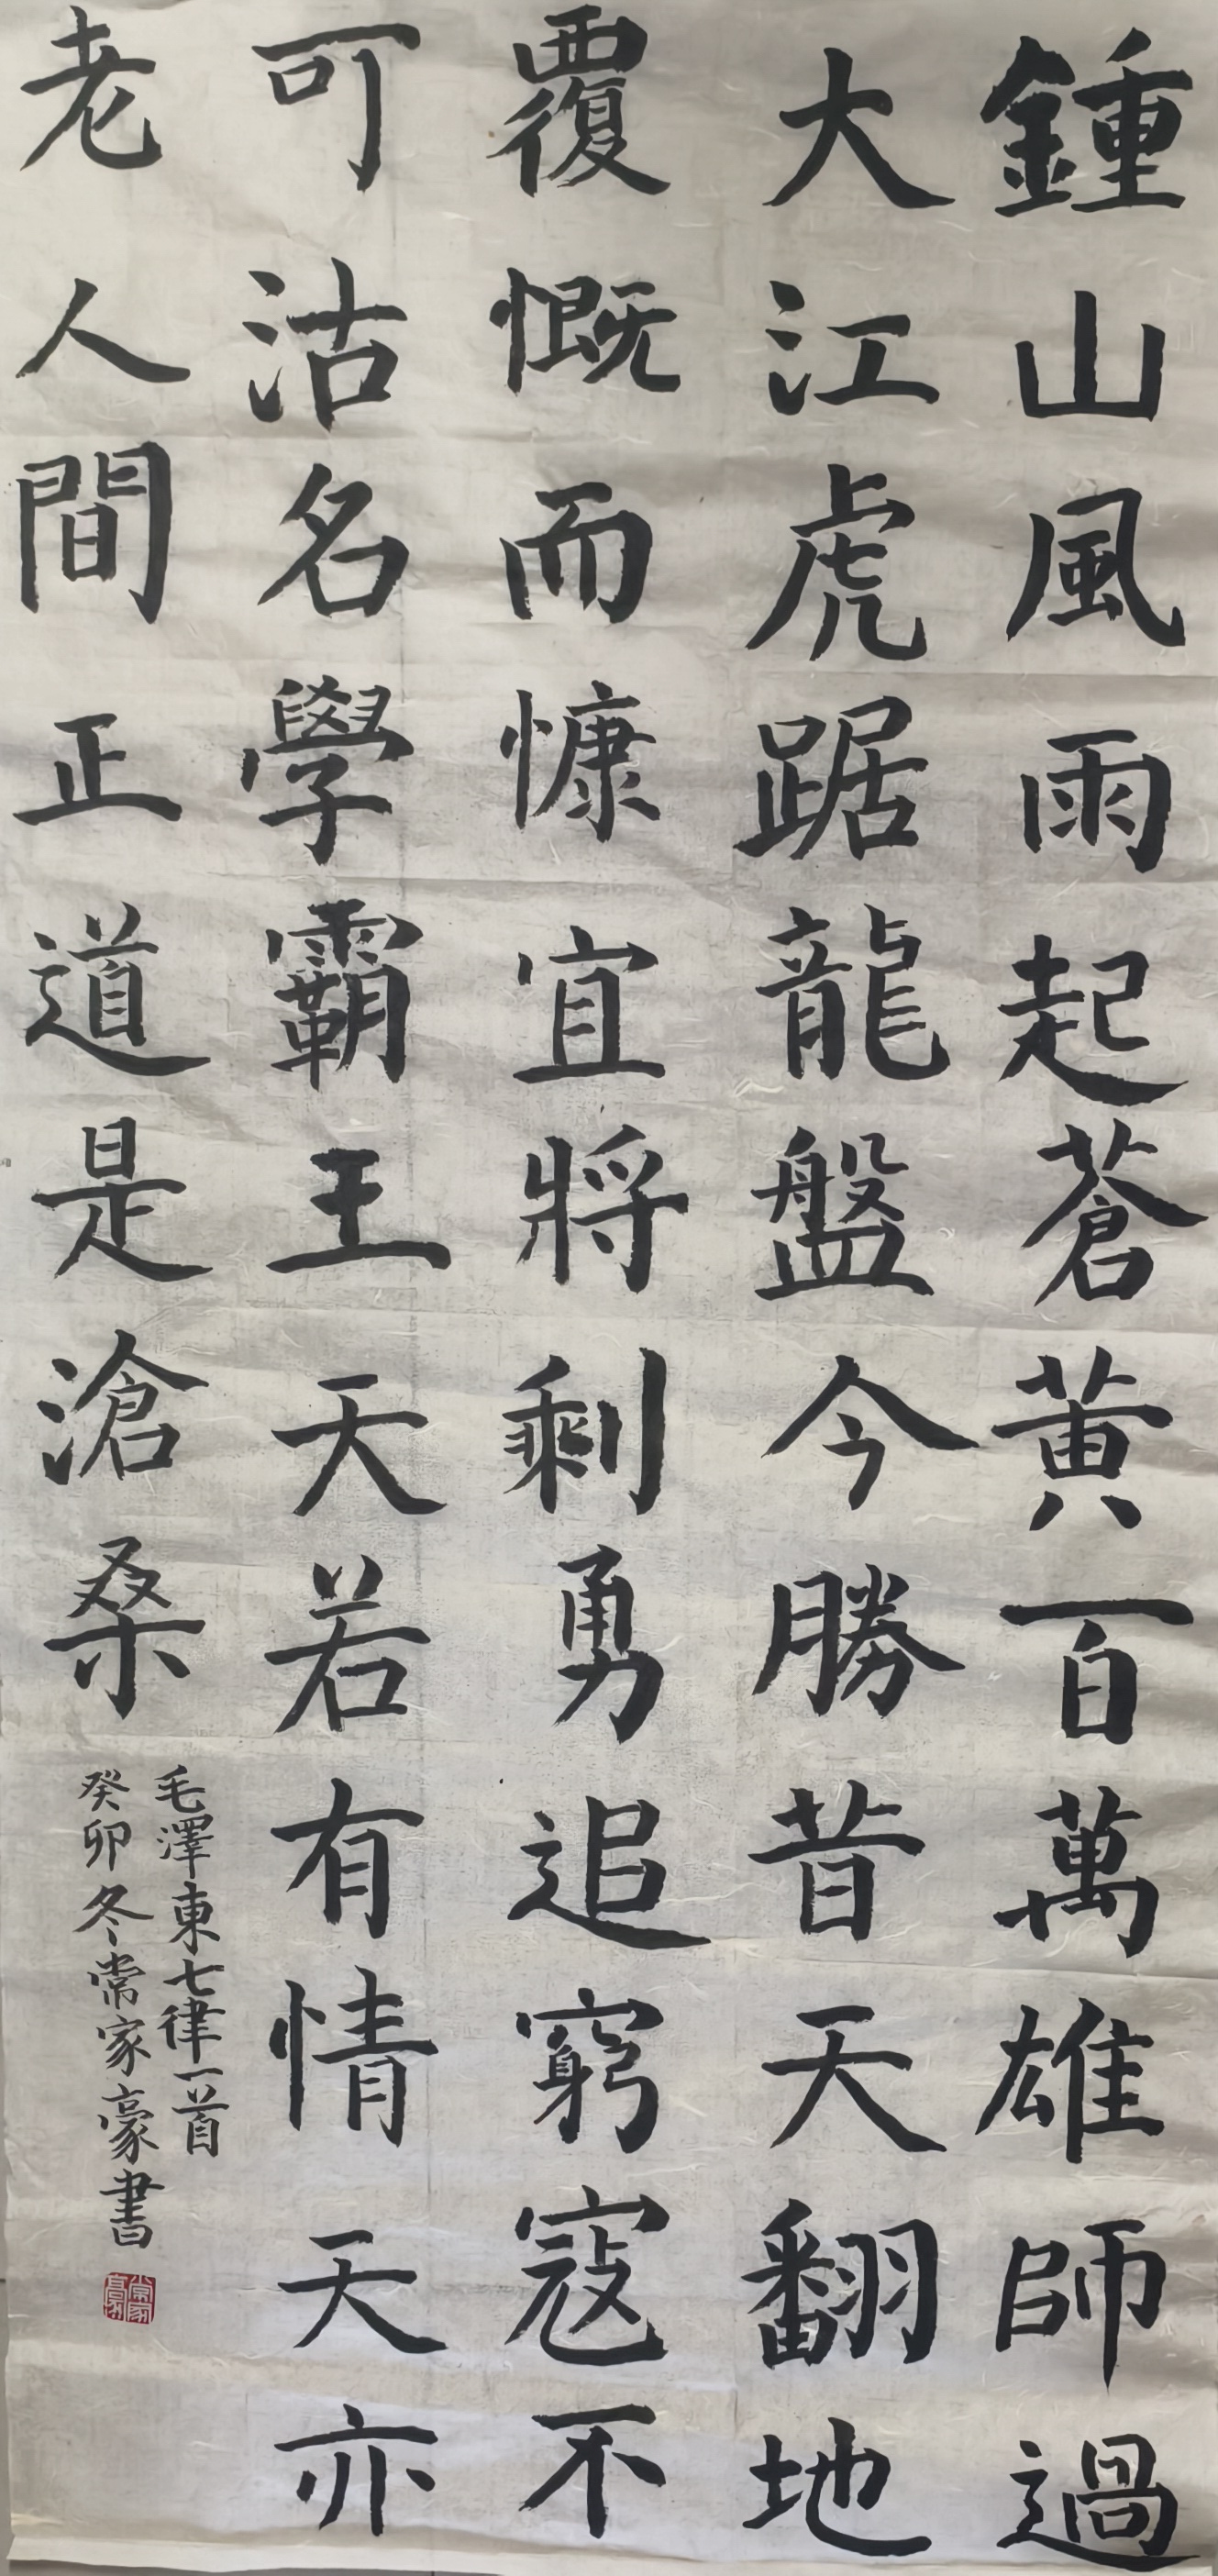 鍾山風雨起蒼黃百萬雄師過
大江虎踞龍盤今勝昔天翻地
覆慨而慷宜將剩勇追窮寇不
可沽名學霸王天若有情天亦
老人間正道是滄桑
毛澤東七律一首
癸卯冬常家豪書
常家豪